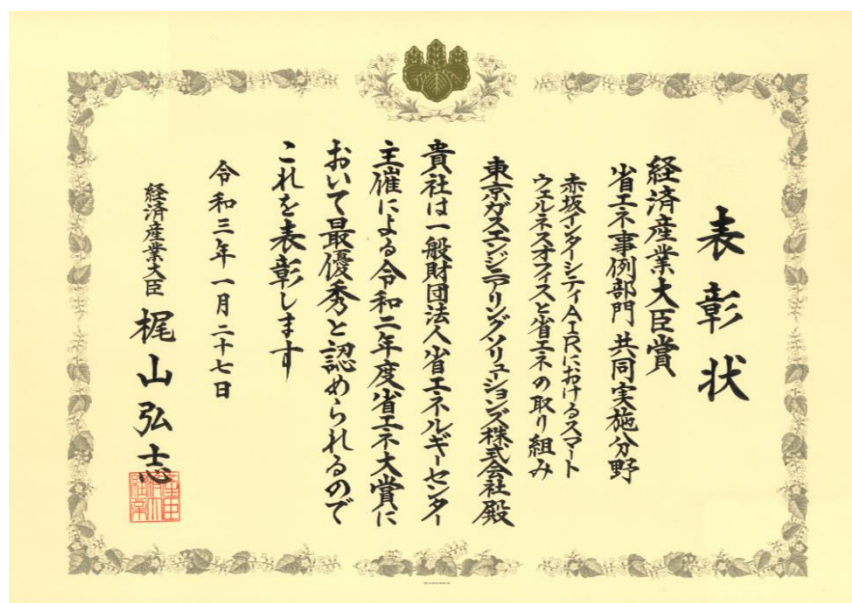 表彰状
経済産業大臣賞
省エネ事例部門 共同実施分野
赤坂インターシティAIRにおけるスマート
ウェルネスオフィスと省エネの取り組み
東京ガスエンジニアリングソリューションズ株式会社殿
貴社は一般財団法人省エネルギーセンター
主催による令和二年度省エネ大賞に
おいて最優秀と認められるので
これを表彰します
令和三年一月二十七日
経済産業大臣 梶山弘志